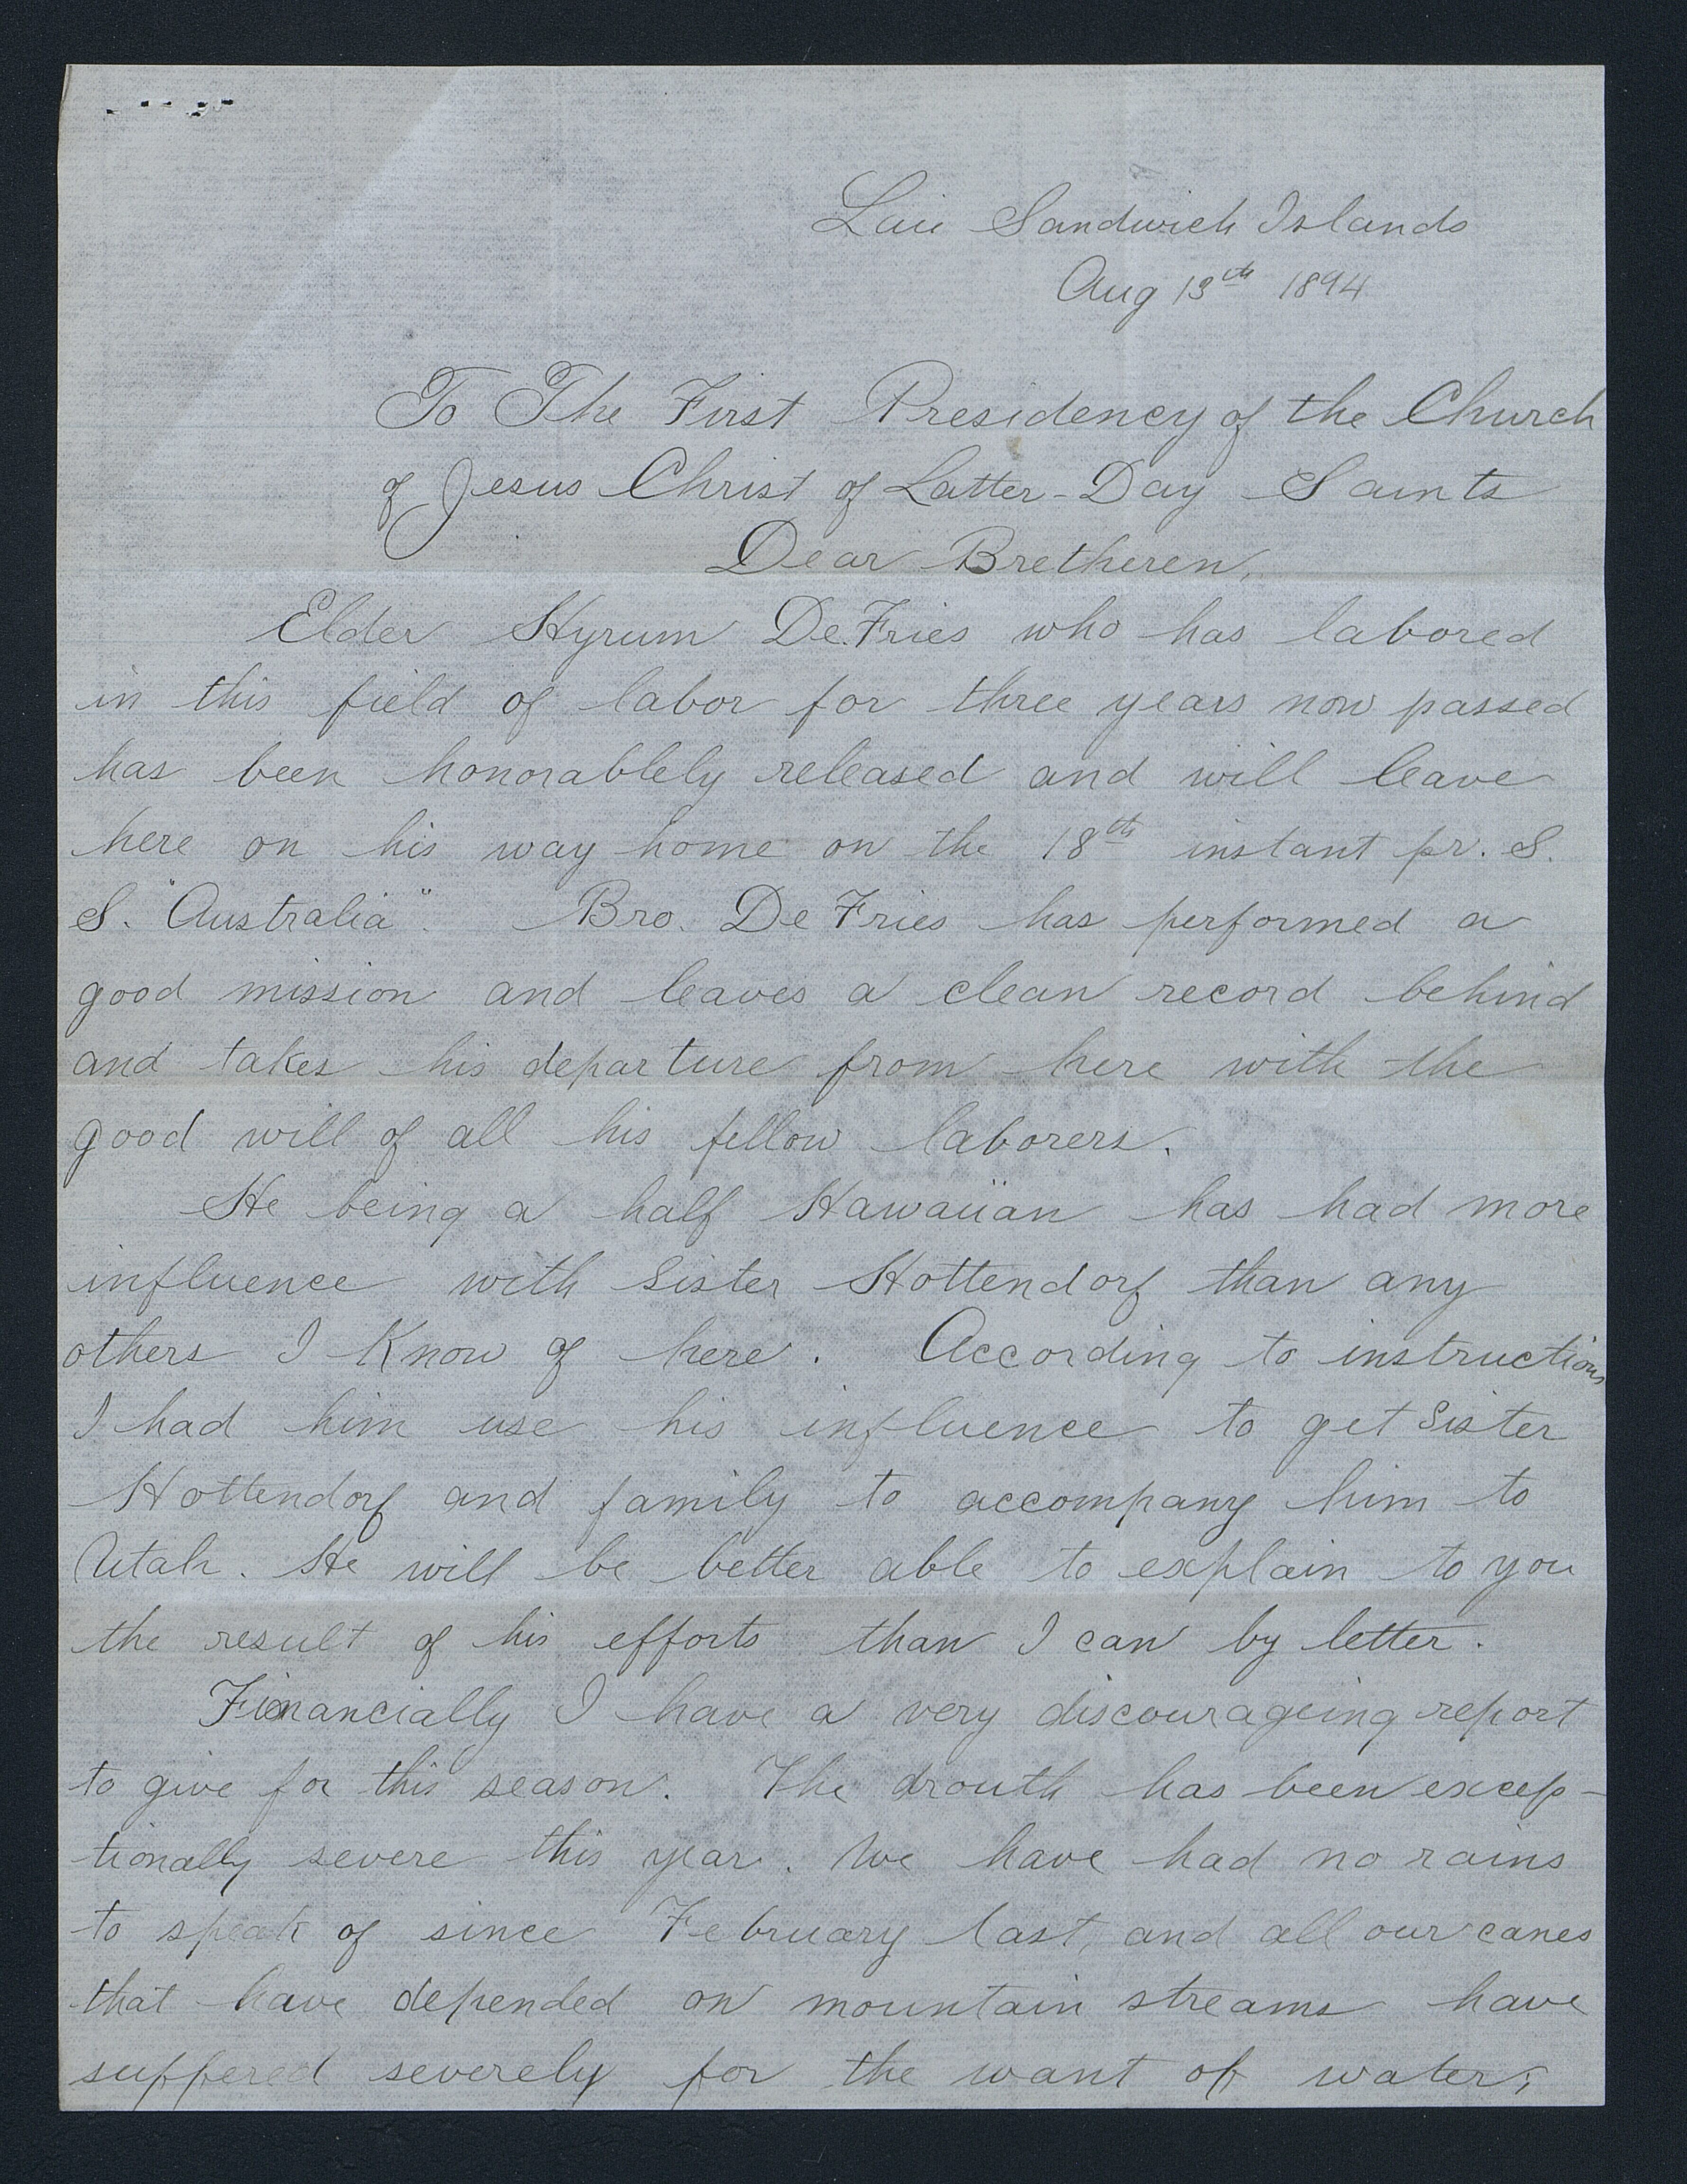 Laie Sandwich Islands
Aug 13th 1894
To The First Presidency of the Church
of Jesus Christ of Latter-Day Saints
Dear Bretheren,
Elder Hyrum De.Fries who has labored
in this field of labor for three years now passed
has been honorablely released and will leave
here on his way home on the 18th instant pr. S.
S. "Australia". Bro. De Fries has performed a
good mission and leaves a clean record behind
and takes his departure from here with the
good will of all his fellow laborers.
He being a half Hawaiian has had more
influence with Sister Hottendorf than any
others I Know of here. According to instructions
I had him use his influence to get Sister
Hottendorf and family to accompany him to
Utah. He will be better able to explain to you
the result of his efforts than I can by letter.
Financially I have a very discourageing report
to give for this season. The drouth has been excep-
tionally severe this year. We have had no rains
to speak of since February last, and all our canes
that have depended on mountain streams have
suffered severely for the want of water;